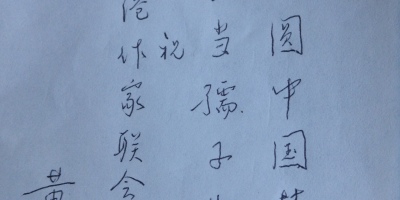 圆中国梦
当孺子牛
祝
港作家联会
黄